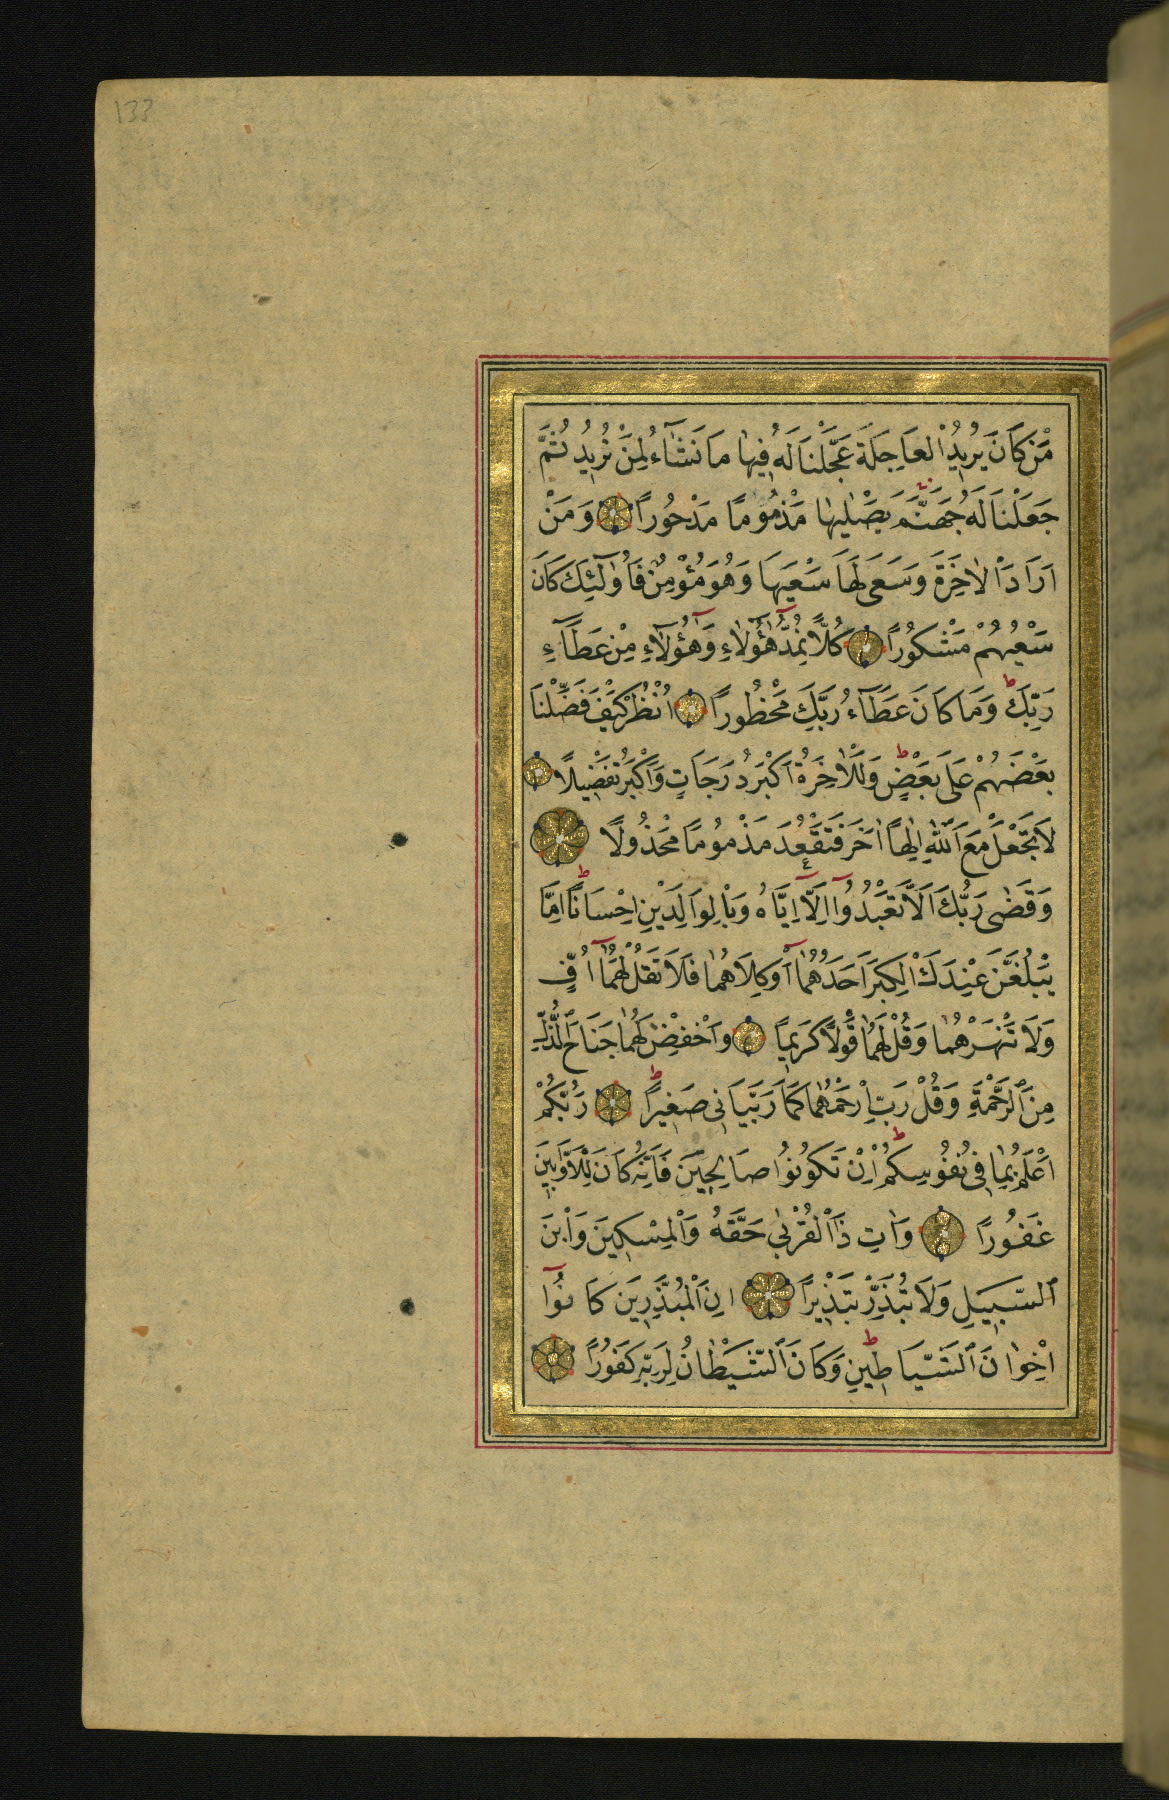 133
مَنْ كَانَ يُرِيدُ الْعَاجِلَةَ عَجَّلْنَا لَهُ فِيهَا مَا نَشَاءُ لِمَنْ نُرِيدُ ثُمَّ
جَعَلْنَا لَهُ جَهَنَّمَ يَصْلٰيهَا مَذْمُومًا مَدْحُورًا وَمَنْ
اَرَادَ الْاٰخِرَةَ وَسَعٰى لَهَا سَعْيَهَا وَهُوَ مُؤْمِنٌ فَاُولٰٓئِكَ كَانَ
سَعْيُهُمْ مَشْكُورًا كُلًّا نُمِدُّ هٰٓؤُلَاءِ وَهٰٓؤُلَاءِ مِنْ عَطَاءِ
رَبِّكَ ط وَمَا كَانَ عَطَاءُ رَبِّكَ مَحْظُورًا اُنْظُرْ كَيْفَ فَضَّلْنَا
بَعْضَهُمْ عَلٰى بَعْضٍ ط وَلَلْاٰخِرَةُ اَكْبَرُ دَرَجَاتٍ وَاَكْبَرُ تَفْضِيلًا
لَا تَجْعَلْ مَعَ اللّٰهِ اِلٰهًا اٰخَرَ فَتَقْعُدَ مَذْمُومًا مَخْذُولًا
وَقَضٰى رَبُّكَ اَلَّا تَعْبُدُوٓا اِلَّٓا اِيَّاهُ وَبِالْوَالِدَيْنِ اِحْسَانًا ط اِمَّا
يَبْلُغَنَّ عِنْدَكَ الْكِبَرَ اَحَدُهُمَٓا اَوْ كِلَاهُمَا فَلَا تَقُلْ لَهُمَٓا اُفٍّ
وَلَا تَنْهَرْهُمَا وَقُلْ لَهُمَا قَوْلًا كَرِيمًا وَاخْفِضْ لَهُمَا جَنَاحَ الذُّلِّ
مِنَ الرَّحْمَةِ وَقُلْ رَبِّ ارْحَمْهُمَا كَمَا رَبَّيَانِى صَغِيرًا ط رَبُّكُمْ
اَعْلَمُ بِمَا فِى نُفُوسِكُمْ ط اِنْ تَكُونُوا صَالِحِينَ فَاِنَّهُ كَانَ لِلْاَوَّابِينَ
غَفُورًا وَاٰتِ ذَا الْقُرْبٰى حَقَّهُ وَالْمِسْكِينَ وَابْنَ
السَّبِيلِ وَلَا تُبَذِّرْ تَبْذِيرًا اِنَّ الْمُبَذِّرِينَ كَانُوٓا
اِخْوَانَ الشَّيَاطِينِ ط وَكَانَ الشَّيْطَانُ لِرَبِّهِ كَفُورًا